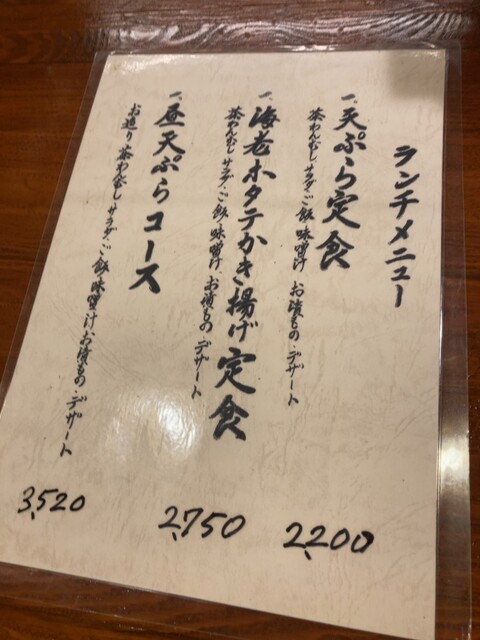 ランチメニュー
一、天ぷら定食
茶わんむし・サラダ・ご飯・味噌汁・お漬もの・デザート
2,200
一、海老ホタテかき揚げ定食
茶わんむし・サラダ・ご飯・味噌汁・お漬もの・デザート
2,750
一、昼天ぷらコース
お造り・茶わんむし・サラダ・ご飯・味噌汁・お漬もの・デザート
3,520